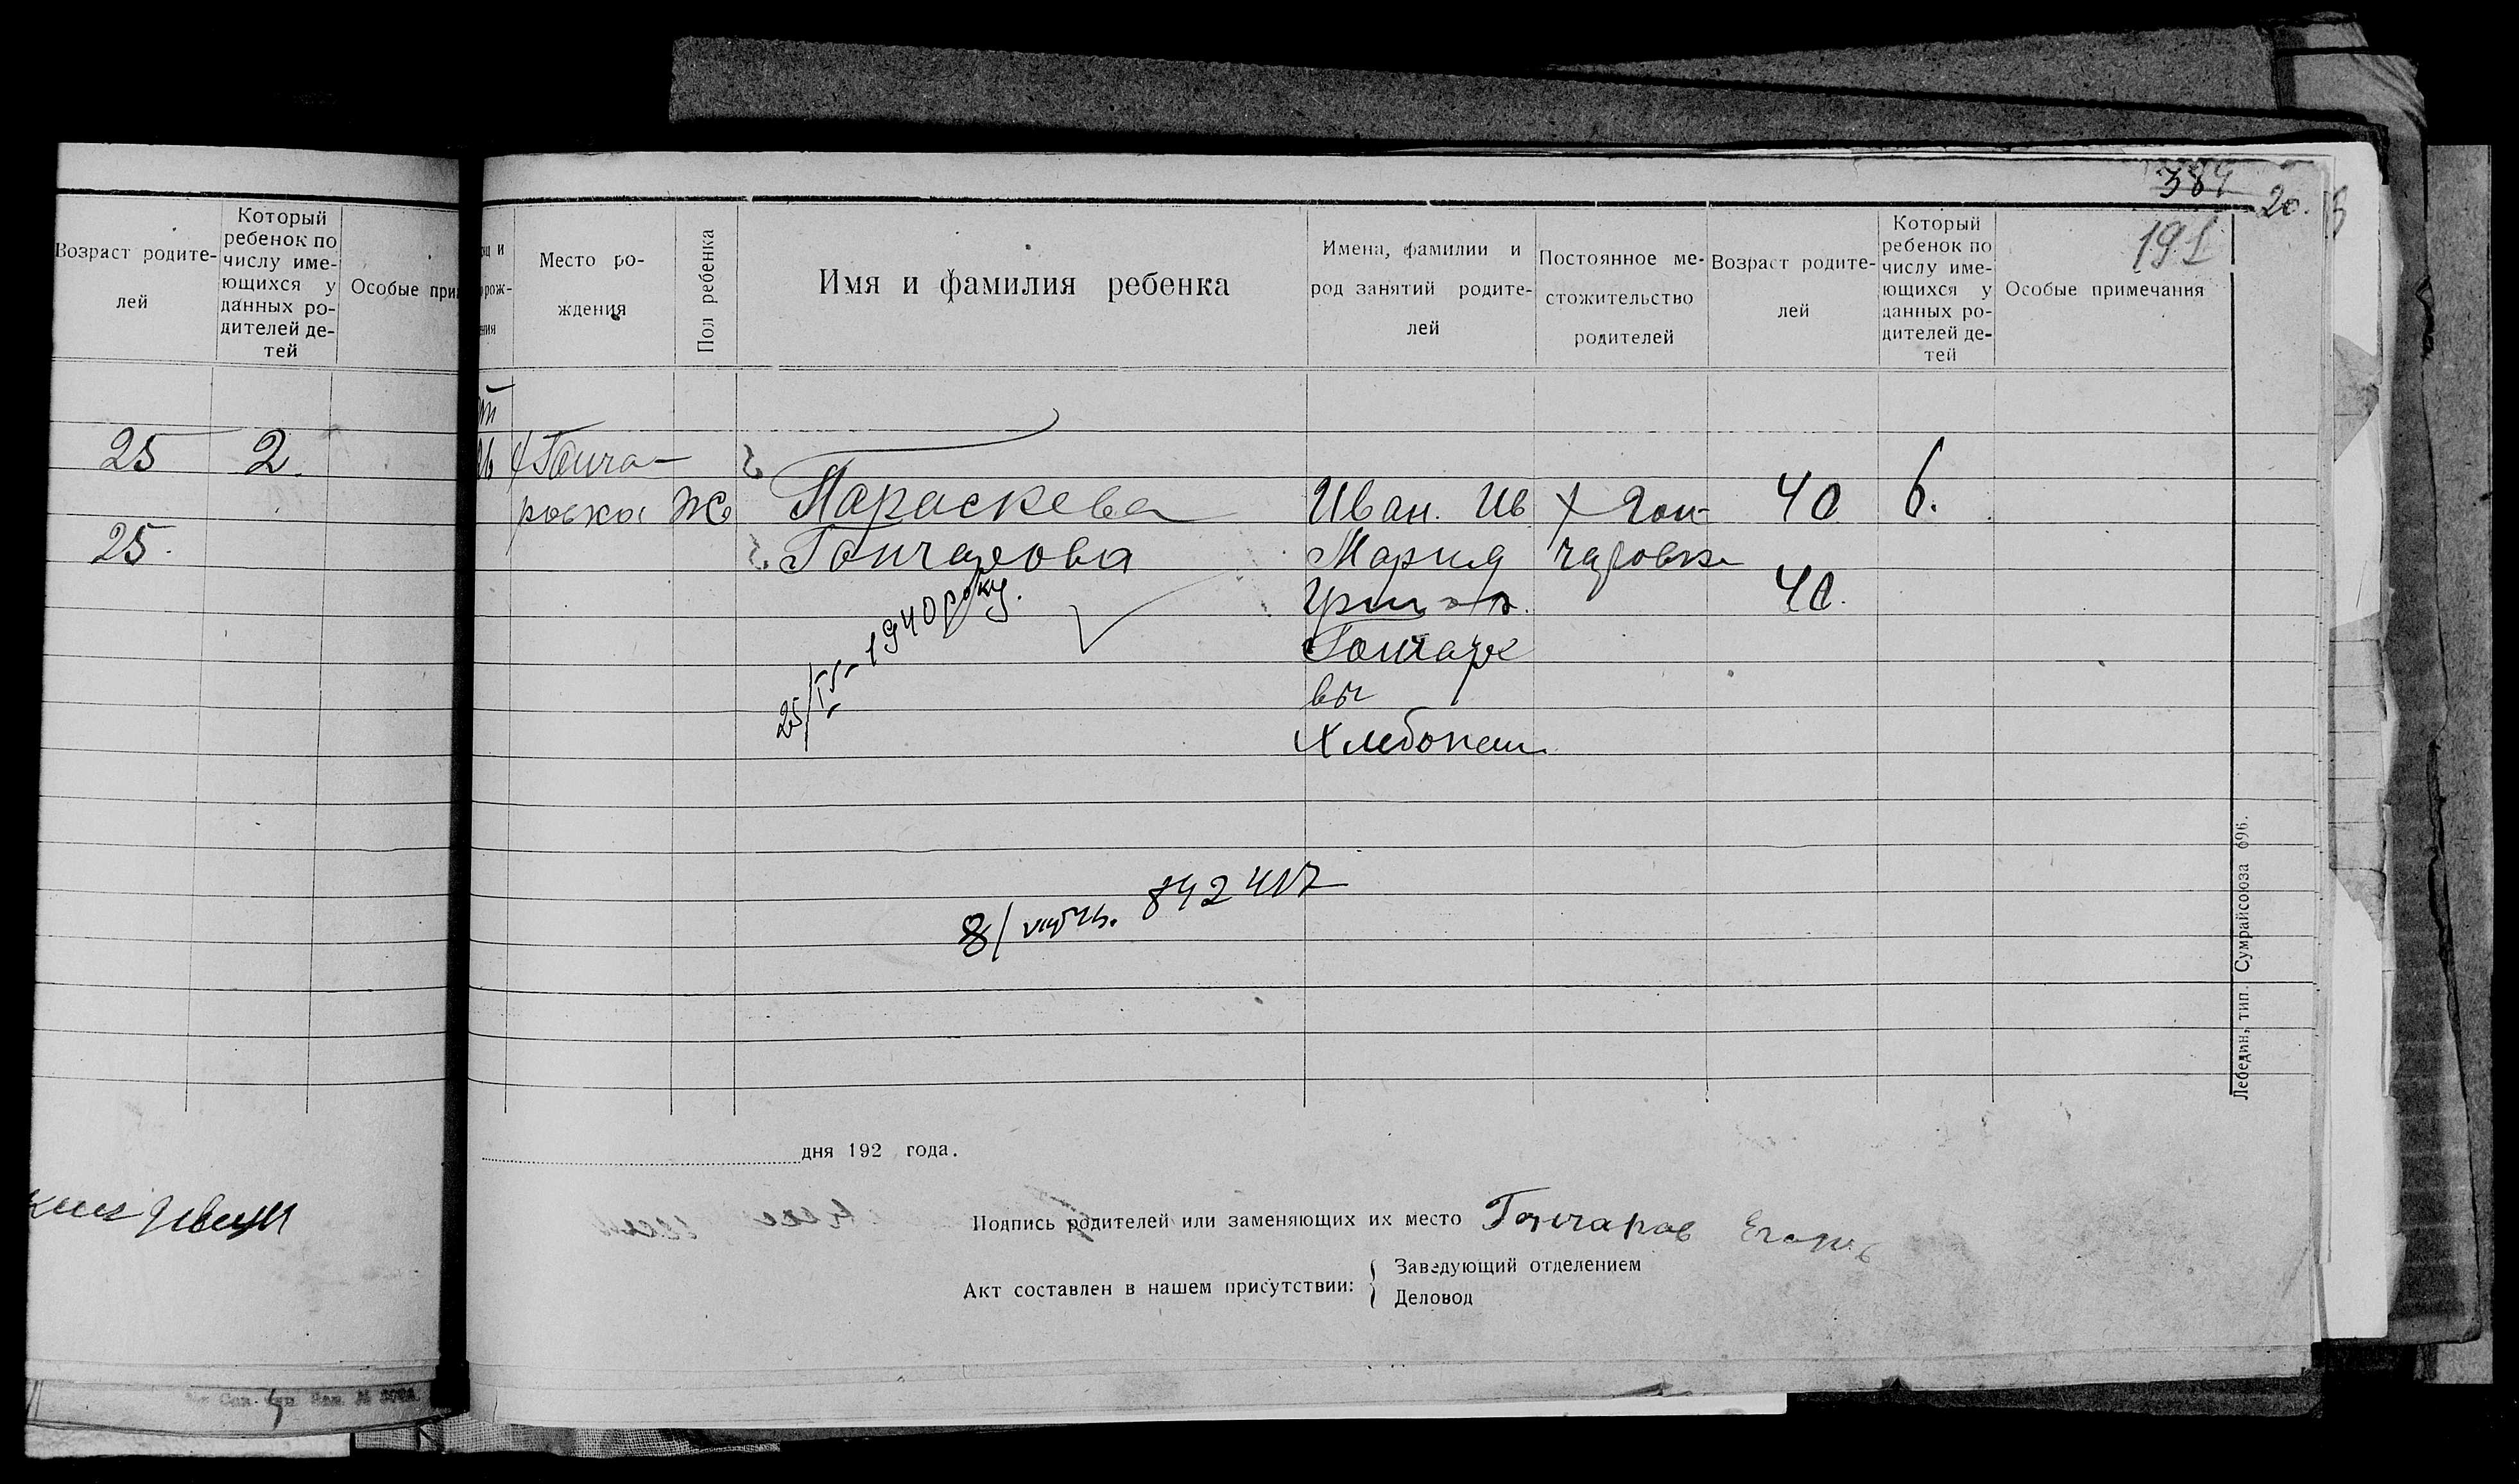 Возраст родите-
лей
Который
ребенок по
числу име-
ющихся у
данных ро-
дителей де-
тей
Особые при
25 2.
25.
384
20.
191
Место ро-
ждения
Пол ребенка
Имя и фамилия ребенка
Имена, фамилии и
род занятий родите-
лей
Постоянное ме-
стожительство
родителей
Возраст родите-
лей
Который
ребенок по
числу име-
ющихся у
данных ро-
дителей де-
тей
Особые примечания
х Гонча-
ровка Ж Параскева Иван. Ив х Гон- 40 6.
Гончарова Мария чаровка
40.
Гончаро
вы
Хлебопаш
25/IV-1940 року.
8/ 842417
дня 192 года.
Подпись родителей или заменяющих их место Гончаров Егоръ
Акт составлен в нашем присутствии:
Заведующий отделением
Деловод
Лебедин, тип. Сумрайсоюза 696.